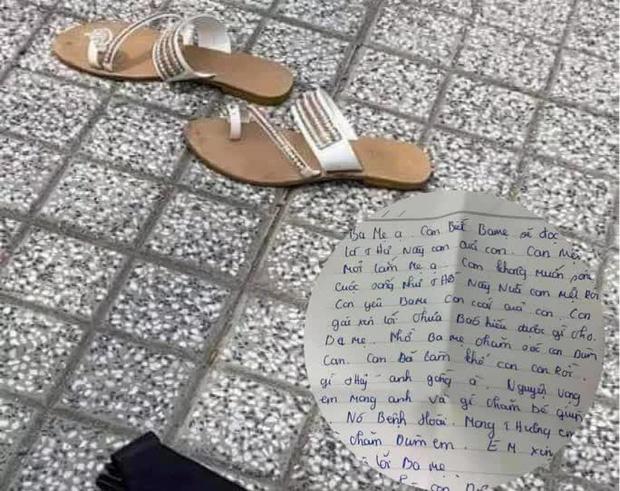 Ba Mẹ ạ. Con Biết Bame sẽ đọc
lá thư này của con. Con Mệt
Mỏi lắm Mẹ ạ. Con không muốn
cuộc sống như thế Này Nữa con mệt Rồi
Con yêu Bame con của con. Con
gái xin lỗi chưa Báo hiếu được gì cho
Ba mẹ. Nhờ Ba mẹ chăm sóc con Dùm
Con. Con Đã làm khổ con con Rồi.
gì Thuỷ anh à Nguyện vọng
em mong anh và gì chăm bé
Nó Bệnh Hoài. Mong Thương em
chăm Dùm em. EM xin
lỗi Ba mẹ
con